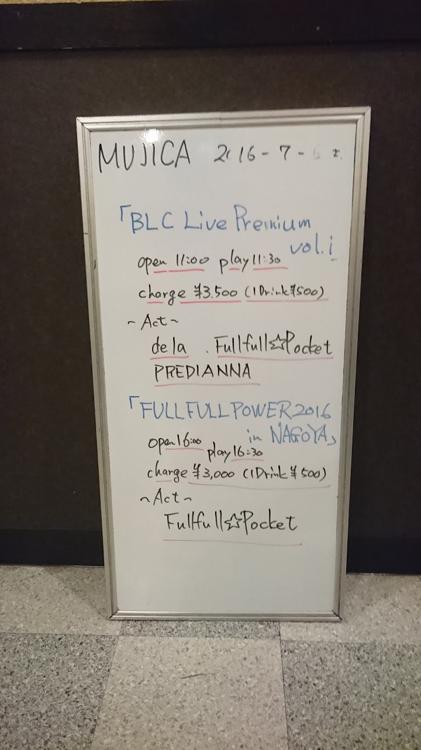 MUJICA 2016-7-
「BLC Live Premium
vol.i
open 11:00 play 11:30
charge ¥3.500 (1Drink ¥500)
~Act~
dela . Fullfull☆Pocket
PREDIANNA
「FULLFULL POWER 2016
in NAGOYA」
open 16:00 play 16:30
charge ¥3,000 (1Drink ¥500)
~Act~
Fullfull☆Pocket